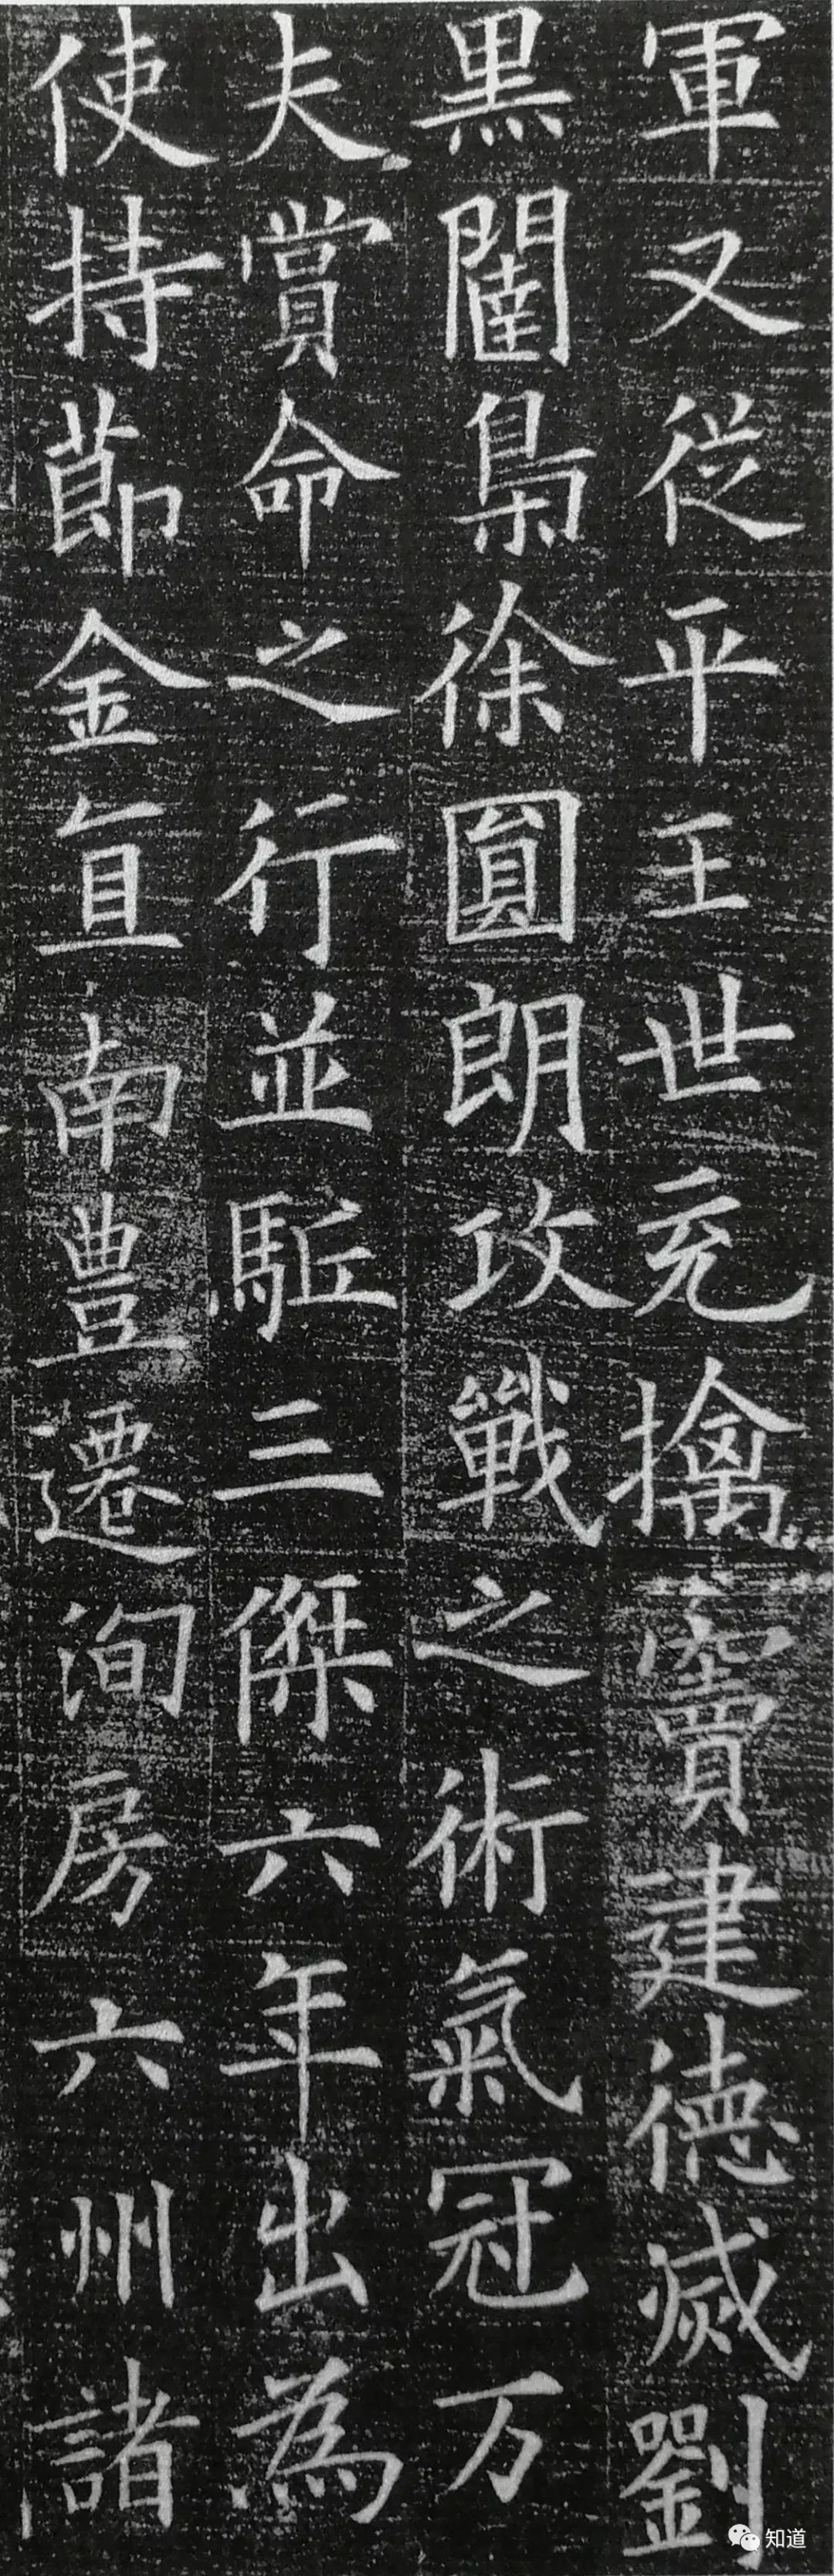 軍又從平王世充擒竇建德滅劉
黑闥梟徐圓朗攻戰之術氣冠万
夫賞命之行並駈三傑六年出為
使持莭金直南豊遷洵房六州諸
知道